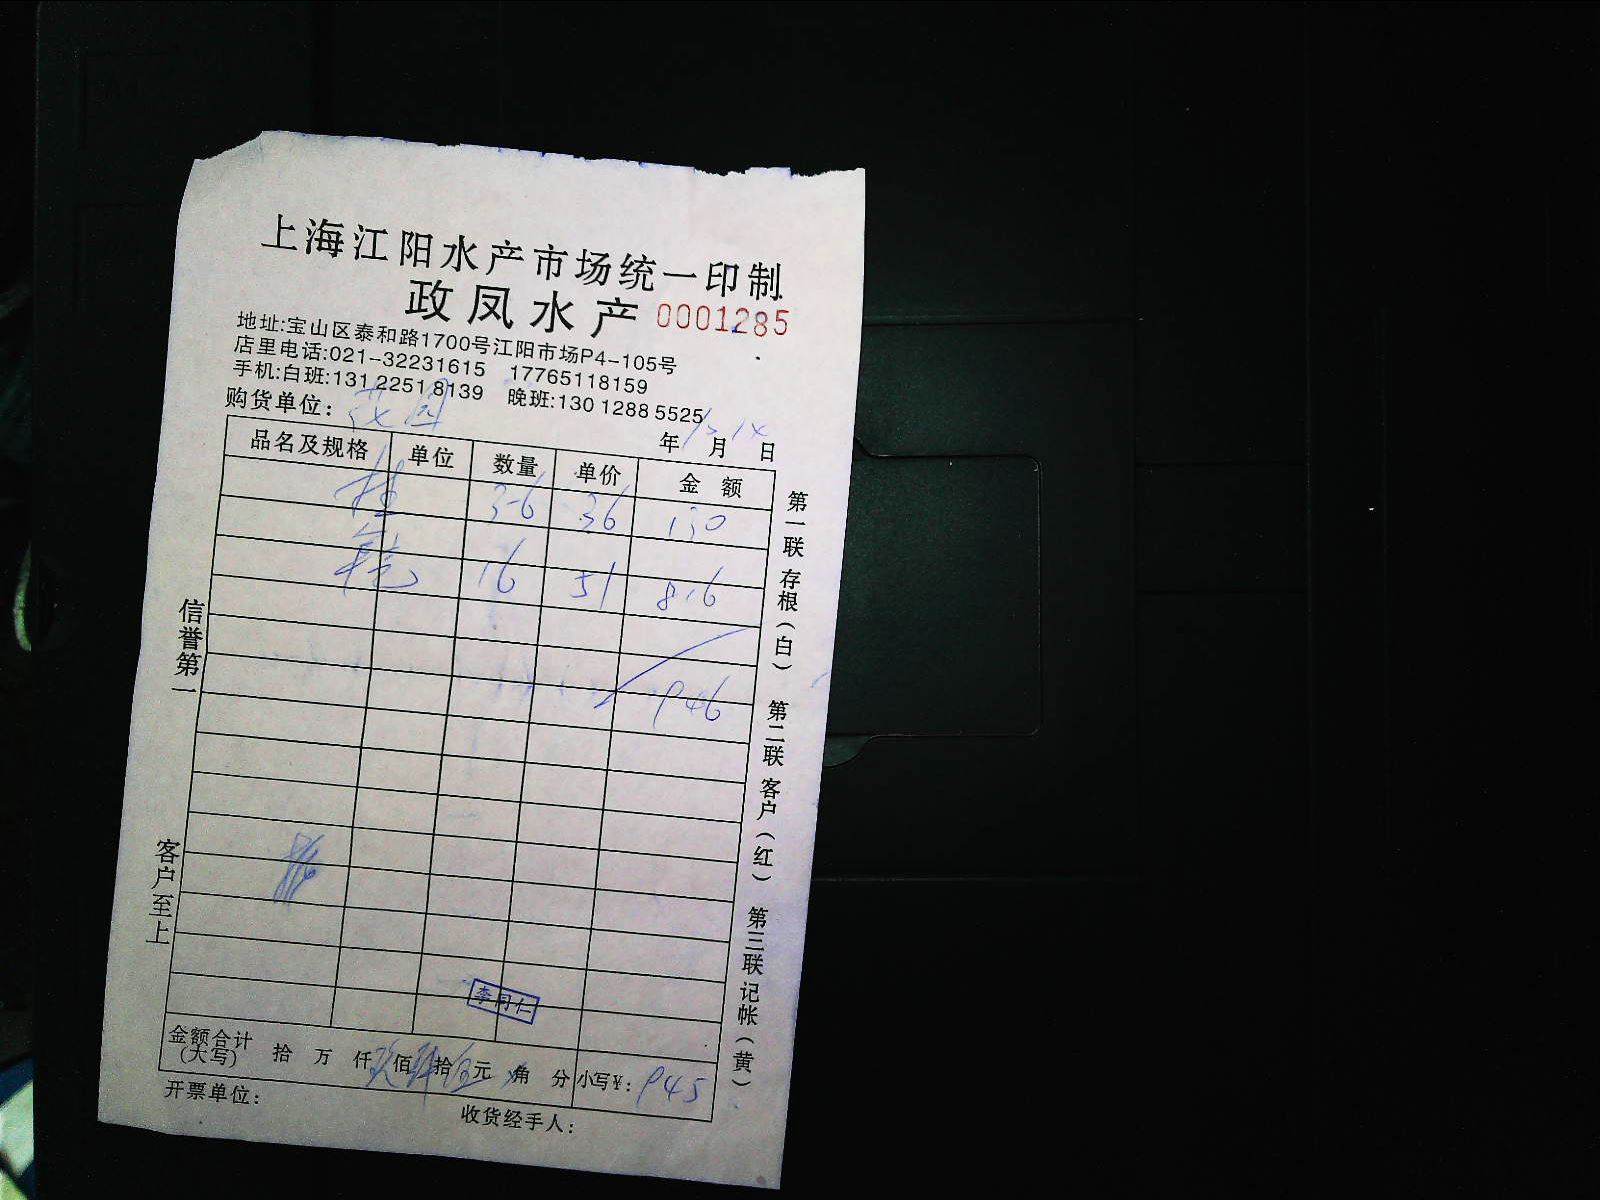 上海江阳水产市场统一印制
政凤水产 0001285
地址:宝山区泰和路1700号江阳市场P4-105号
店里电话:021-32231615 17765118159
手机:白班:131 2251 8139 晚班:130 1288 5525
购货单位:
年 月 14 日
品名及规格 单位 数量 单价 金额
桂 3-6 36 130
16 51 816
946
李同仁
金额合计(大写) 拾 万 仟 玖 佰 肆 拾 伍 元 角 分 小写¥: 945
开票单位: 收货经手人:
信誉第一 客户至上
第一联 存根(白) 第二联 客户(红) 第三联 记帐(黄)